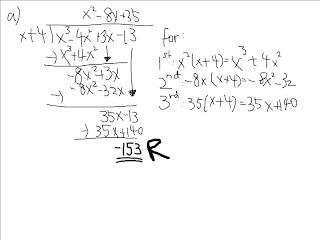 a)
x²-8x+35
x+4)x³-4x²+3x-13
-)x³+4x²
-8x²+3x
-) -8x²-32x
35x-13
-) 35x+140
-153 R
for:
1st: x²(x+4)=x³+4x²
2nd: -8x(x+4)=-8x²-32
3rd: 35(x+4)=35x+140